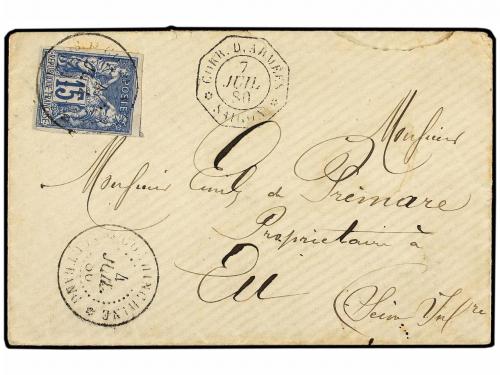 15
CORR. D. ARMÉES
7
JUIL
80
SAIGON
Monsieur
Monsieur
de Prémare
Propriétaire à
Eu
(Seine Infre
4
JUIL
80
COCHINCHINE